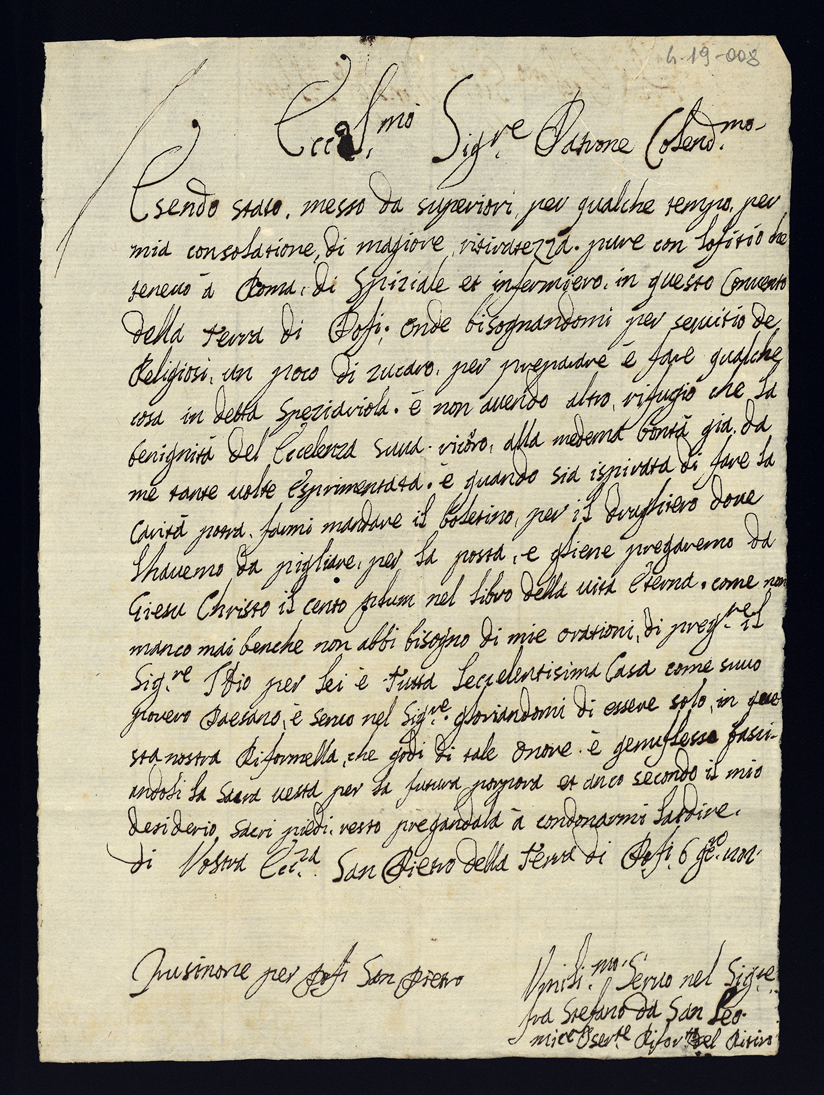 4-19-008
Ecce.l.mo Sig.re Patrone Colend.mo
Esendo stato. messo da superiori, per qualche tempo. per
mia consolatione, di magiore, ritiratezza. pure con lofitio che
tenevo à Roma, di Spiziale et infermiero, in questo Convento
della terra di Pofi; Onde bisognandomi per servitio de
Religiosi, un poco di zucaro, per preparare è fare qualche
cosa in detta speziariola. è non avendo altro, rifugio che la
benignità del Eccelenza suva. ricoro, alla medema bontà gia. da
me tante volte Esprimentata. è quando sia ispirata di fare la
Carità potra. farmi mandare il boletino, per il draghiero dove
lhavemo da pigliare, per la posta, e gliene pregaremo da
Giesu Christo il cento plum nel libro della vita Eterna. come non
manco mai benche non abbi bisogno di mie orationi, di preg.re il
Sig.re Idio per lei è tutta leccelentisima Casa come suvo
povero Paesano, è servo nel Sig.re gloriandomi di essere solo, in que
sta nostra Riformella, che godi di tale onore. è genuflesso basci-
andoli la sacra vesta per la futura porpora et anco secondo il mio
desiderio, sacri piedi, resto pregandola à condonarmi lardire.
di Vostra Ecc.za San Pietro della terra di Pofi 6
Frusinone per Pofi San Pietro
Umilis.mo Servo nel Sig.re
fra Stefano da San Leo